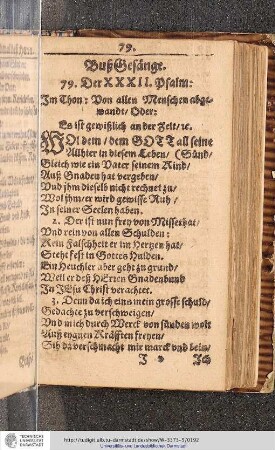 79.
BußGesänge.
79. Der XXXII. Psalm:
Im Thon: Von allen Menschen abge-
wandt/ Oder:
Es ist gewißlich an der Zeit/ ıc.
WOl dem/ dem GOTT all seine
Allhier in diesem Leben/ (Sünd/
Gleich wie ein Vater seinem Kind/
Auß Gnaden hat vergeben/
Und ihm dieselb nicht rechnet zu/
Wol ihm/ er wird gewisse Ruh/
In seiner Seelen haben.
2. Der ist nun frey von Missethat/
Und rein von allen Schulden:
Kein Falschheit er im Hertzen hat/
Steht fest in Gottes Hulden.
Ein Heuchler aber geht zu grund/
Weil er deß HErren Gnadenbund
In JEsu Christ verachtet.
3. Denn da ich eins mein grosse schuld/
Gedachte zu verschweigen/
Und mich durch Werck von sünden wolt
Auß eygnen Kräfften freyen/
Sih da verschmacht mir marck und bein/
J Ich
TECHNISCHE UNIVERSITÄT DARMSTADT
http://tudigit.ulb.tu-darmstadt.de/show/W-3373-570192
Universitäts- und Landesbibliothek Darmstadt